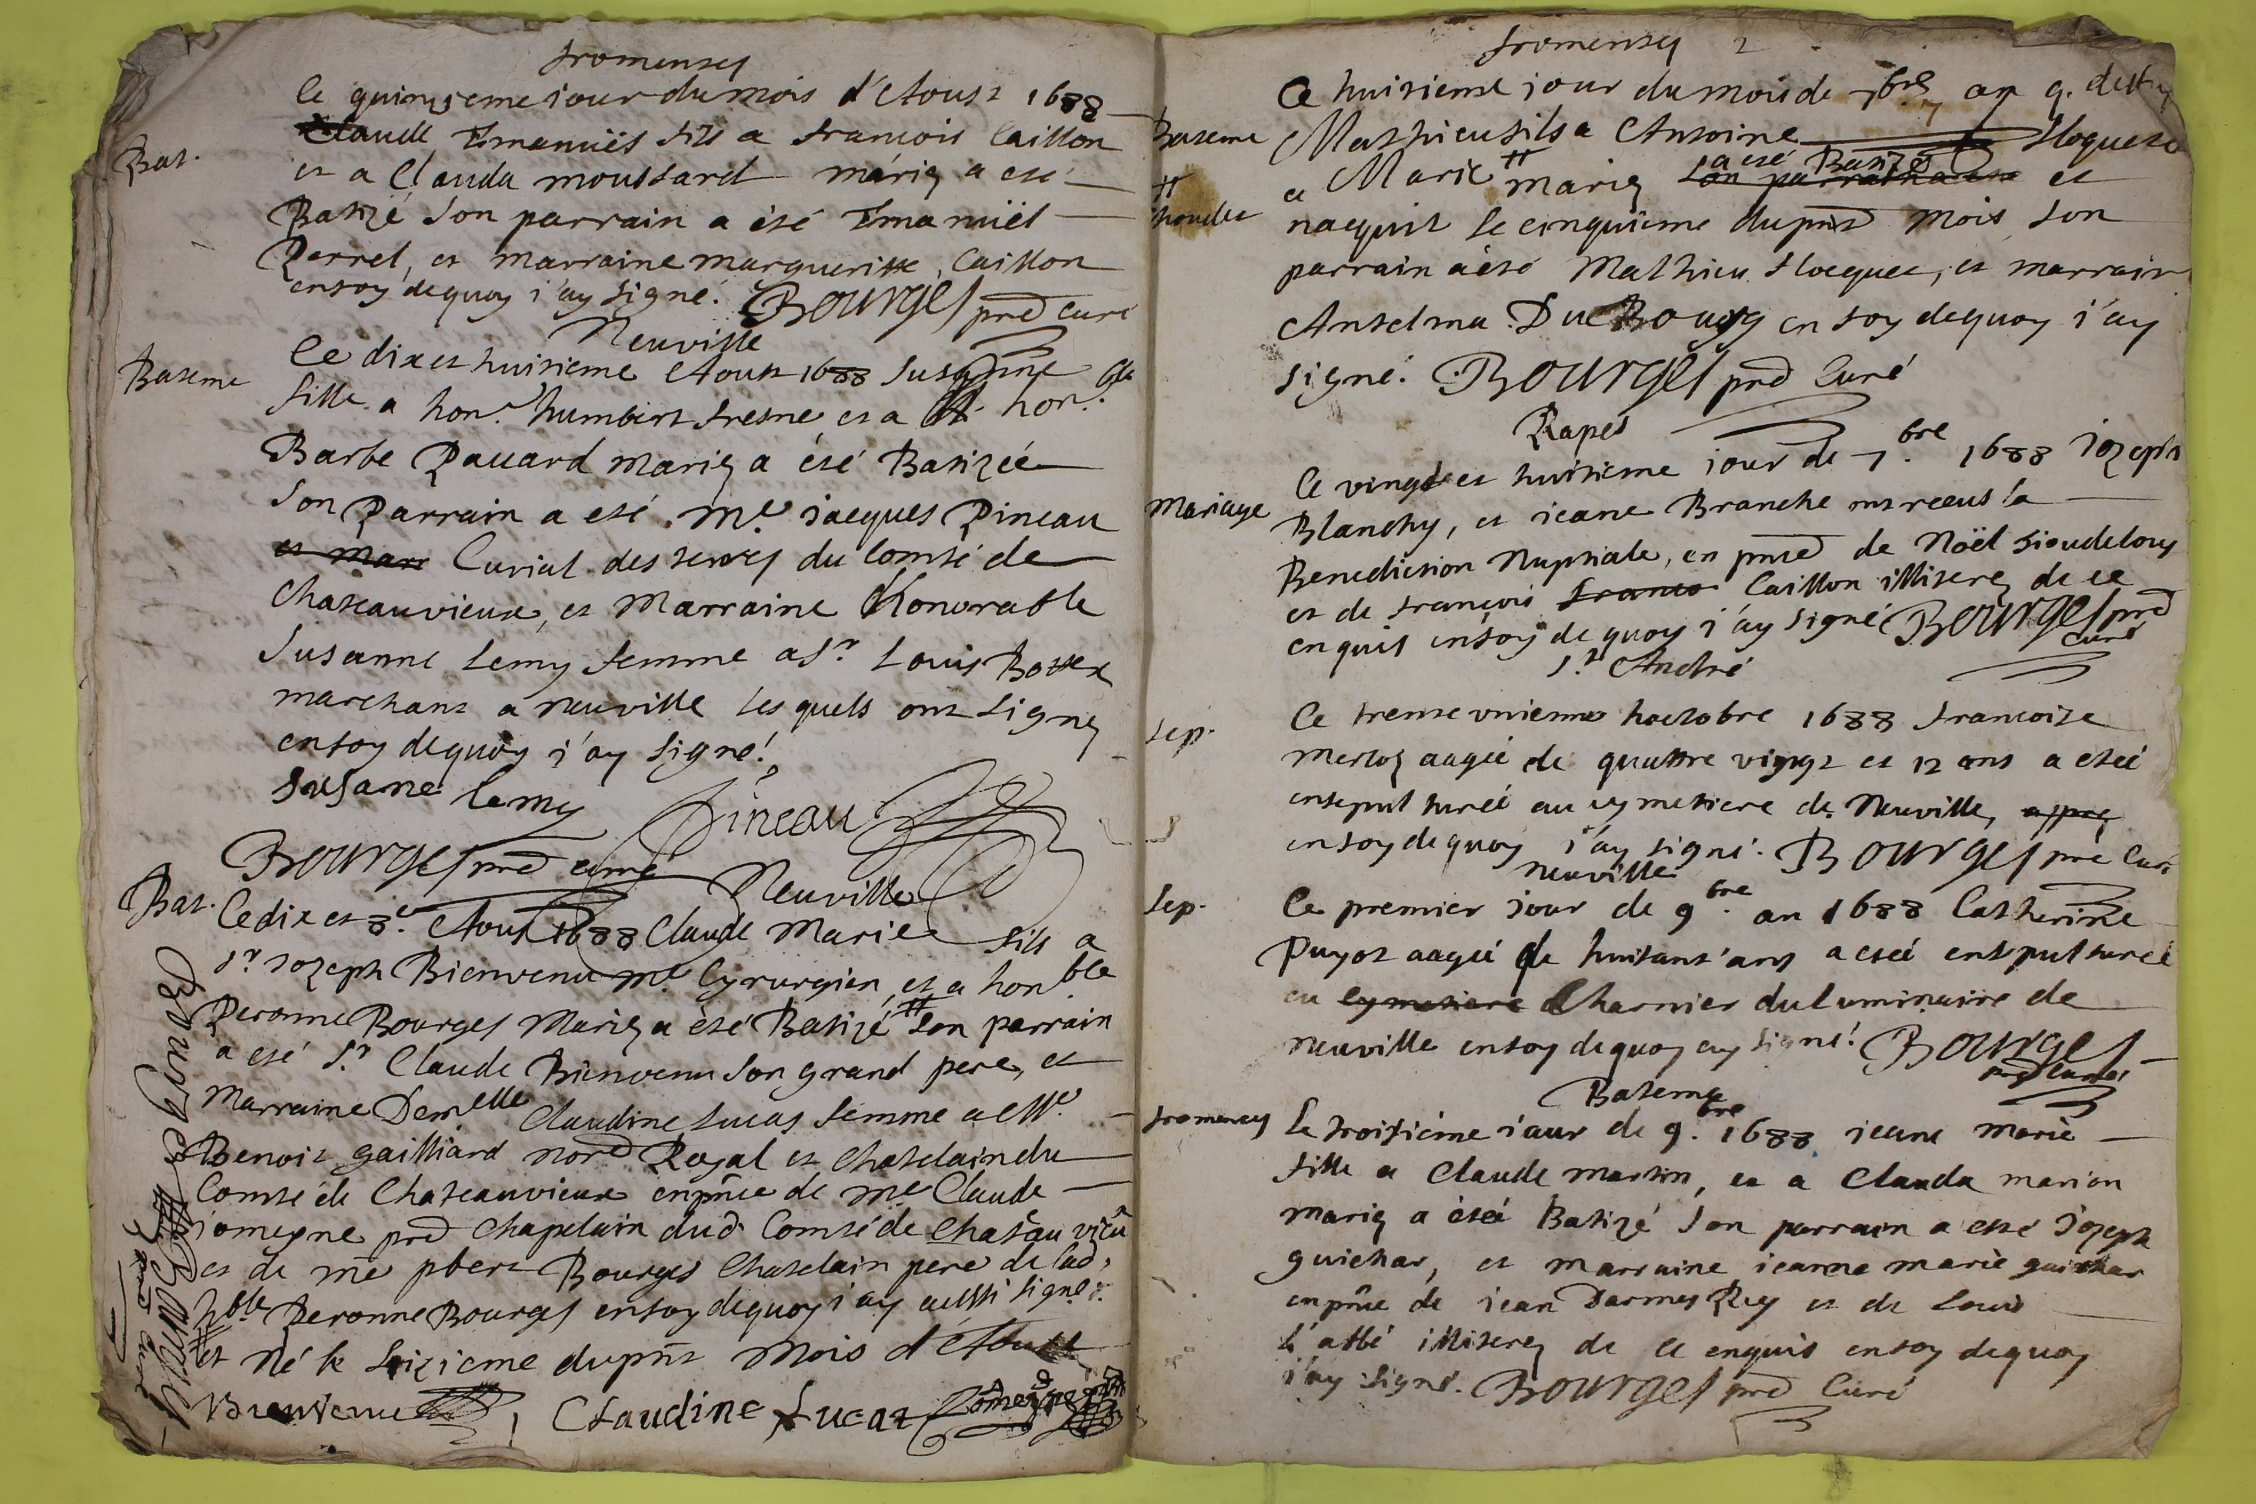 fromentes
Ce quinzieme iour du mois d'Aoust 1688
Bat.
Claude Emanuïel fils a françois Caillon
et a Clauda moussard mariez a esté
Batizé Son parrain a èté Emanuïel
Perret, et marraine margueritte Caillon
en foy de quoy i'ay signé. Bourges prê curé
Neuville
Bateme
Ce dix et huitieme Aoust 1688 Susanne
fille a hon.e humbert fresne et a hon. ble
Barbe Pauard mariez a été Batizée
Son Parrain a eté Me. iacques Pineau
et mar Curial des terres du Comté de
Chateauvieux, et Marraine Honorable
Susanne Lemy femme a Sr. Louis
marchant a neuville lesquels ont signez
en foy de quoy i'ay signé.
Susane lemy Pineau
Bourges prê curé
Neuville
Bat.
Ce dix et 8e. Aoust 1688 Claude Marie fils a
Sr Iozeph Bienvenu me. Cyrurgien, et a hon.ble
Peronne Bourges Mariez a èté Batizé # Son parrain
a eté Sr. Claude Bienvenu Son grand pere, et
Marraine Demelle Claudine Lucas femme a Me.
Benoit gailliard norê Royal et Chatelain du
Comté de Chateauvieux en pñce de me Claude
iomeyne prê Chapelain dud. Comté de Chatêau viêu
et de me pbert Bourges Chatelain pere de lad.
hble Peronne Bourges en foy de quoy i'ay aussi signé.
# et né le seizieme du pñt Mois d'Aoust
Bienvenu Claudine Lucat Iomeyne
Bourges
Bourges
prê curé
fromentes 2
Ce huitieme iour du mois de 7bre an q. dessus
Bateme
Mathieu fils a Antoine floquet
et Marie # mariez a eté Batizé Son parrain a eté et
# 
naquit le cinquieme du pñt Mois Son
parrain a èté Mathieu flocquet, et marraine
Anselma Du Bourg en foy de quoy i'ay
signé. Bourges prê Curé
Rapes
Ce vingt et huitieme iour de 7.bre 1688 Iozeph
Mariage
Blanchy, et ieane Branche ont receus la
Benediction Nuptiale, en pnce de Noël Sioudeloup
et de françois franco Caillon illiterez de ce
enquis en foy de quoy i'ay signé Bourges prê
curé
St. André
Sep.
Ce trente unieme hoctobre 1688 francoise
Merloz aagée de quattre vingt et 12 ans a etéé
ensepulturéé au cymetiere de Neuville, apprez
en foy de quoy i'ay signé. Bourges pre Curé
neuville
Sep.
Ce premier iour de 9.bre an 1688 Catherine
Puyot aagée de huitant'ans a etéé entsepulturéé
au cymetiere Charnier du Luminaire de
neuville en foy de quoy ay signé. Bourges
prê curé
Bateme
fromentes
Le troisiéme iour de 9.bre 1688 ieane marie
fille a Claude martin, et a Clauda marion
mariez a étéé Batizé Son parrain a esté Iozeph
guichar, et marraine ieanne marie guichar
en pñce de iean Darmes Rey et de Louis
L'abbé illiterez de ce enquis en foy de quoy
i'ay signé. Bourges prê Curé